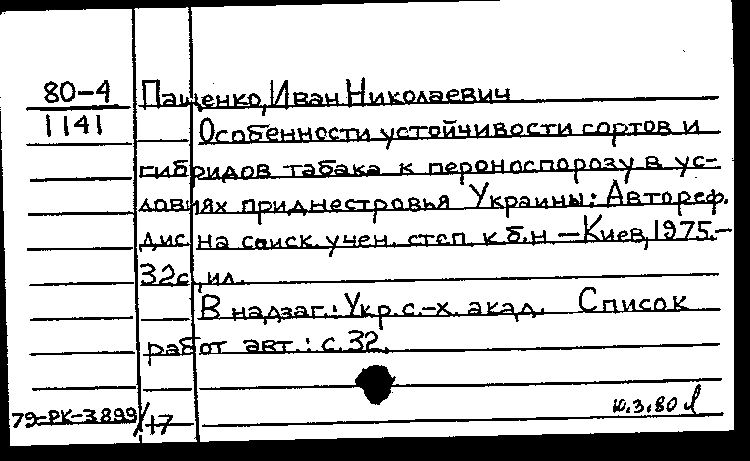 80-4 Пащенко, Иван Николаевич
1141 Особенности устойчивости сортов и
гибридов табака к пероноспорозу в ус-
ловиях приднестровья Украины: Автореф.
дис на соиск. учен. степ. к.б.н - Киев, 1975.-
32с, ил.
В надзаг.: Укр. с.-х. акад. Список
работ авт.: с. 32.
79-РК-3899/17 10.3.80